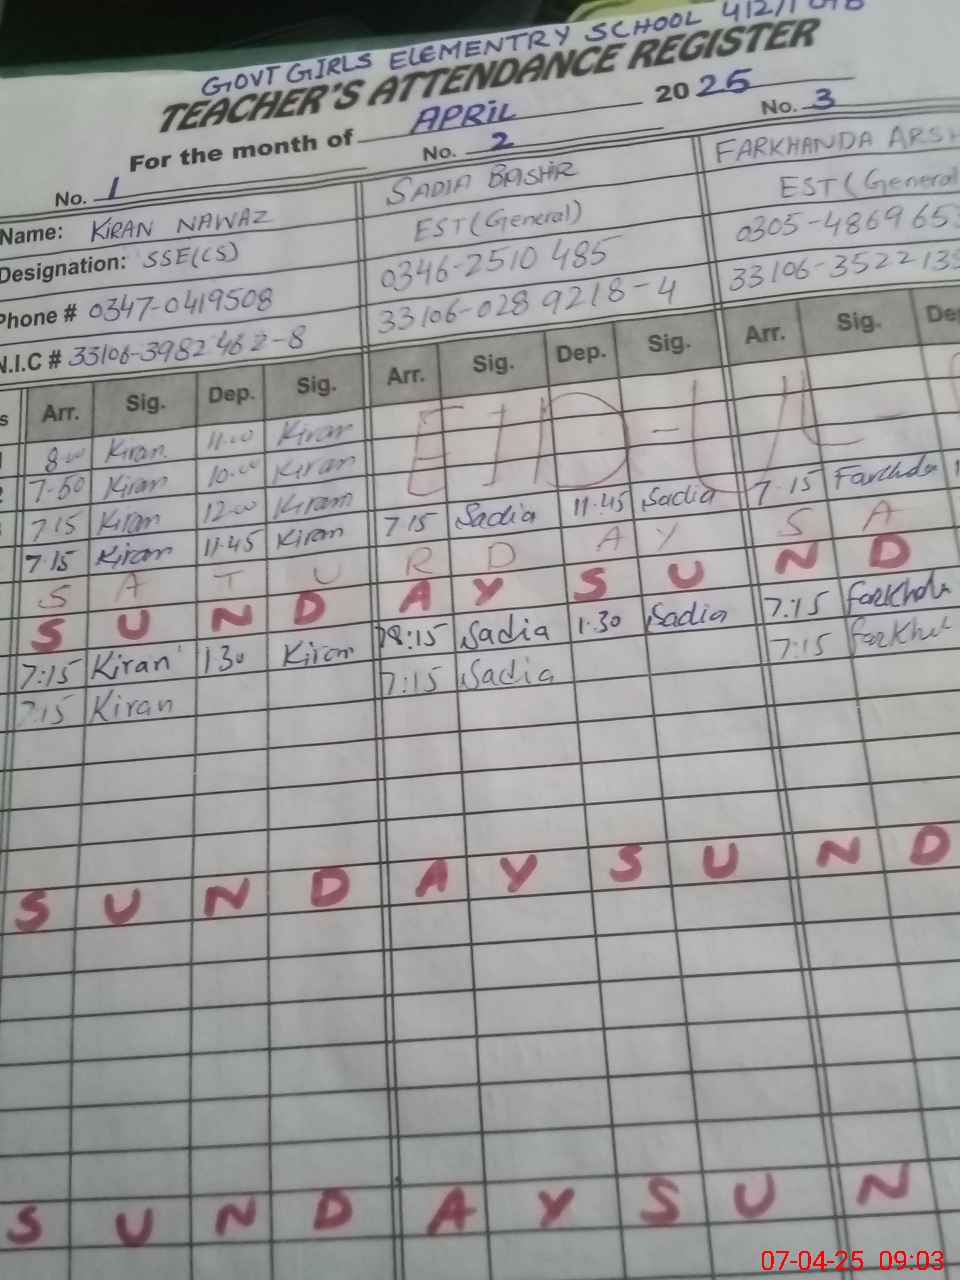 GOVT GIRLS ELEMENTRY SCHOOL 412/
TEACHER'S ATTENDANCE REGISTER
For the month of APRIL 2025
No. 1 No. 2 No. 3
Name: KIRAN NAWAZ SADIA BASHIR FARKHANDA ARSH
Designation: SSE(CS) EST (General) EST (General
Phone # 0347-0419508 0346-2510 485 0305-4869 65
N.I.C # 33106-3982462-8 33106-028 9218-4 33106-3522135
s Arr. Sig. Dep. Sig. Arr. Sig. Dep. Sig. Arr. Sig. De
8:00 Kiran 11:00 Kiran EID-UL-
7:50 Kiran 10:00 Kiran
7:15 Kiran 12:00 Kiram 7:15 Sadia 11:45 Sadia 7:15 Farkhda
7:15 Kiran 11:45 Kiran
S A T U R D A Y S A
S U N D A Y S U N D
7:15 Kiran 1:30 Kiran 8:15 Sadia 1:30 Sadia 7:15 Farkhda
7:15 Kiran 7:15 Sadia 7:15 Farkhu
S U N D A Y S U N D
S U N D A Y S U N
07-04-25 09:03